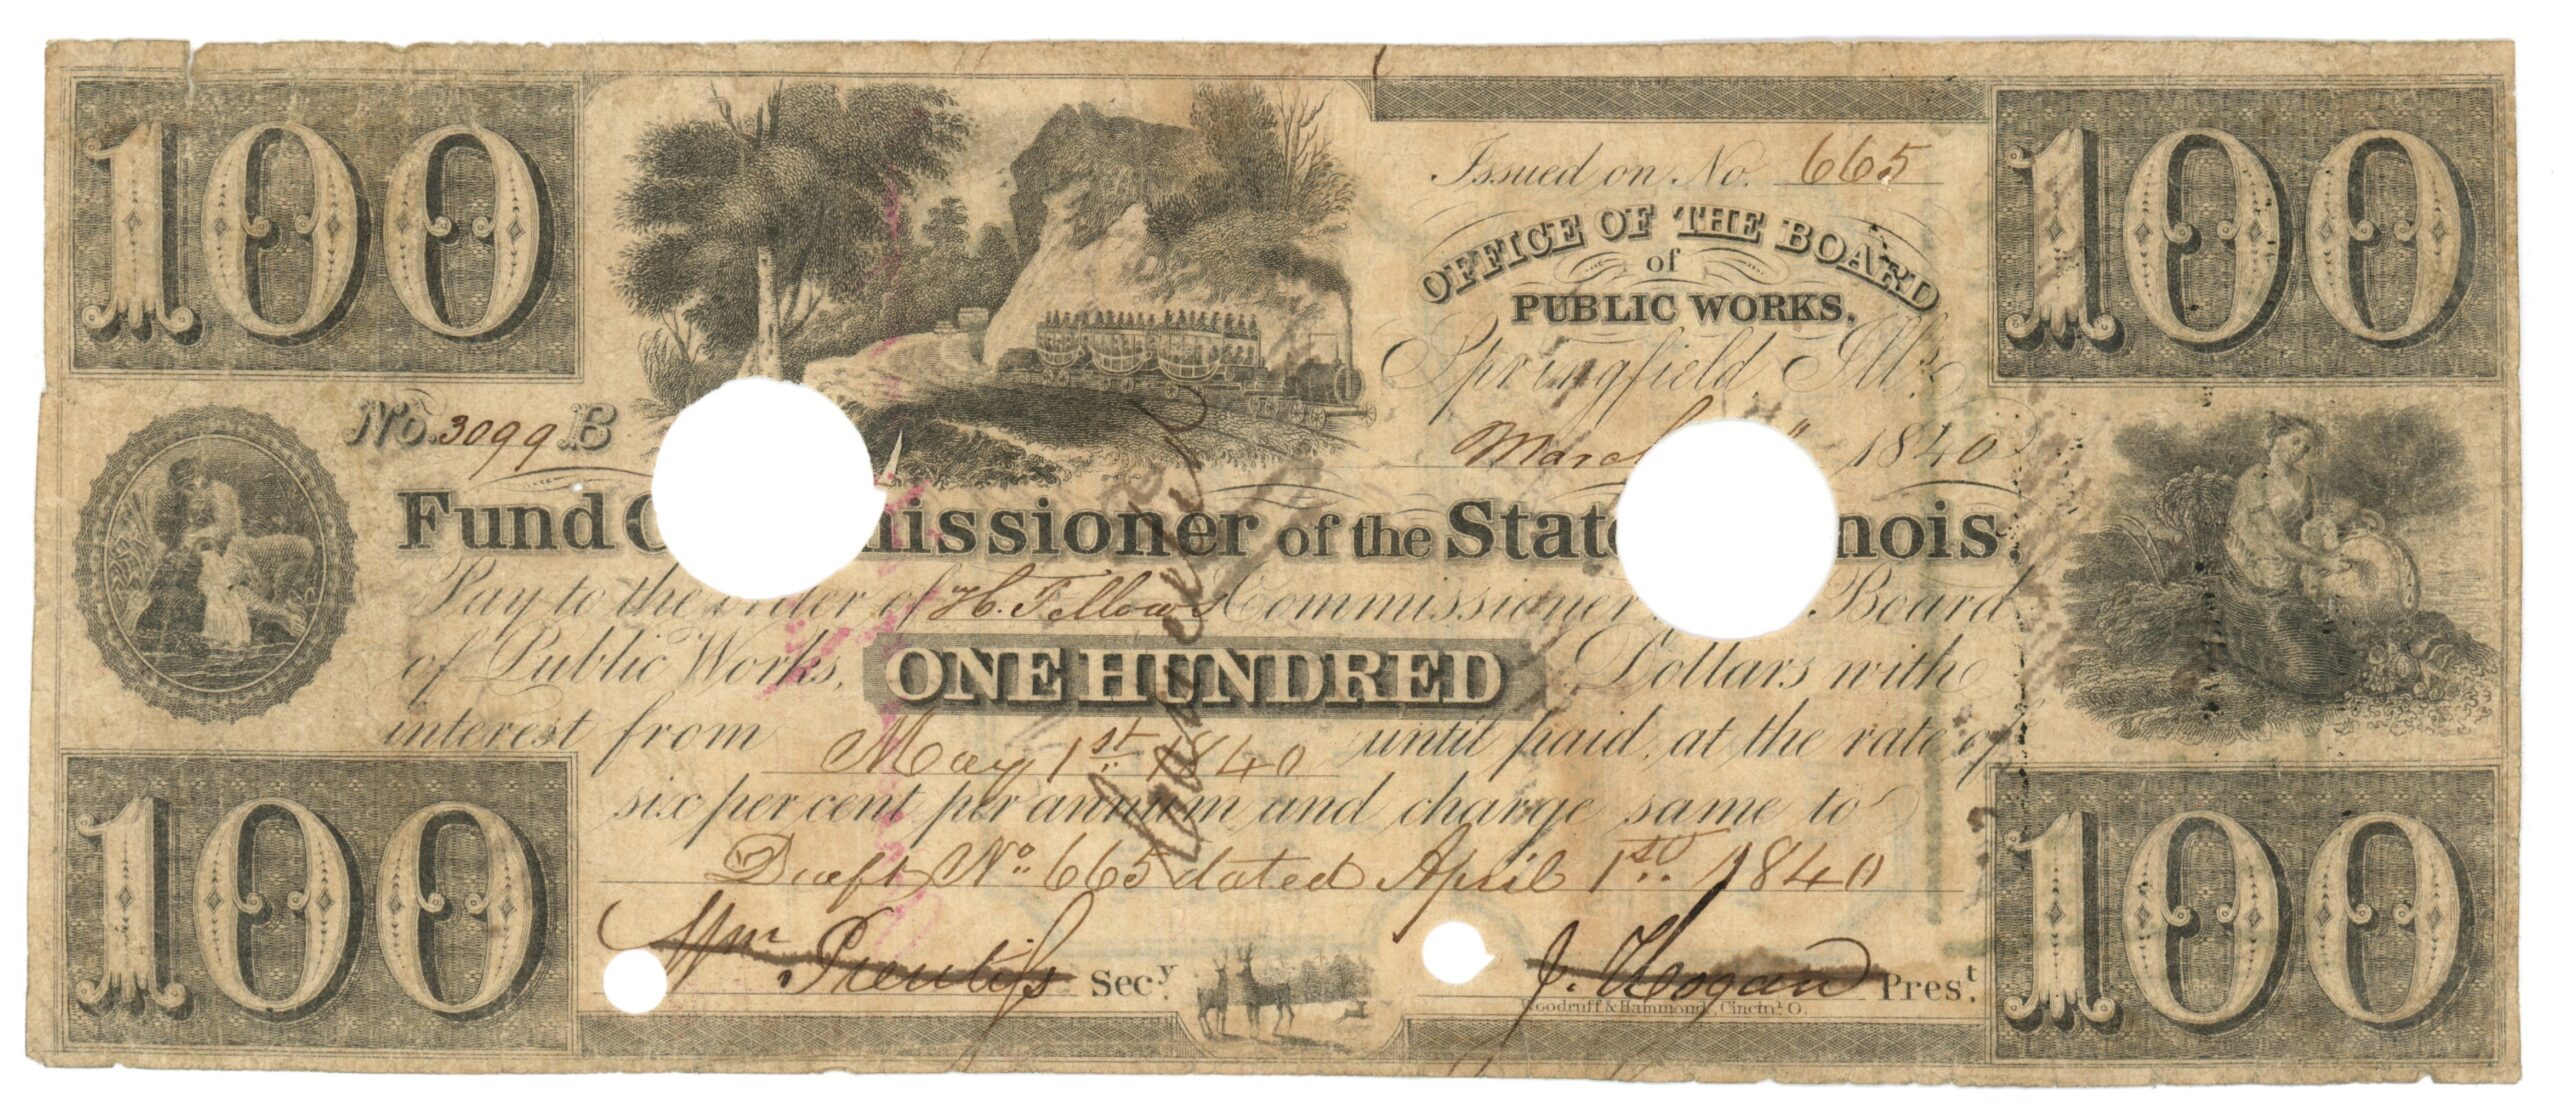 100
100
Issued on No. 665
OFFICE OF THE BOARD
of
PUBLIC WORKS,
Springfield Ills.
March " 1840
No. 3099 B
Fund C missioner of the Stat nois.
Pay to the order of H. Fellows Commissioner Board
of Public Works, ONE HUNDRED Dollars with
interest from May 1st 1840 until paid, at the rate of
six per cent per annum and charge same to
Draft No. 665 dated April 1st. 1840
Wm. Prentiss Secy. J. Hogan Prest.
Woodruff & Hammond, Cincinti. O.
100
100